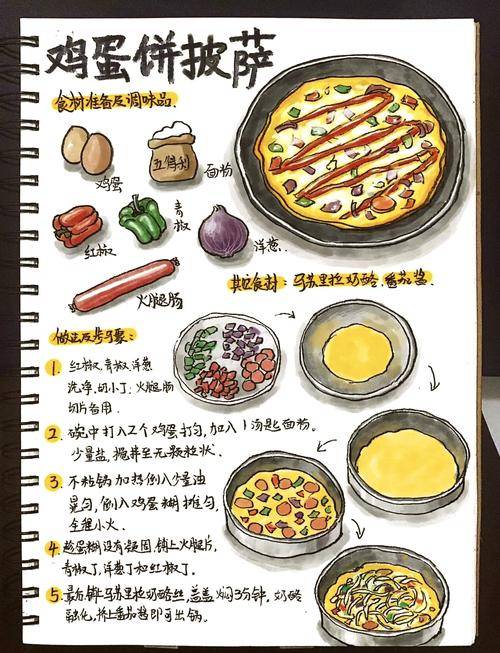 鸡蛋饼披萨
食材准备及调味品.
鸡蛋
五得利
面粉
红椒
青椒
洋葱.
火腿肠
其它食材：马苏里拉奶酪.番茄酱.
做法及步骤：
1. 红椒,青椒,洋葱
洗净,切小丁；火腿肠
切片备用.
2. 碗中打入2个鸡蛋打匀,加入1汤匙面粉。
少量盐,搅拌至无颗粒状.
3. 不粘锅加热倒入少量油
晃匀,倒入鸡蛋糊推匀,
全程小火.
4. 趁蛋糊没有凝固,铺上火腿片,
青椒丁,洋葱丁和红椒丁.
5. 最后铺上马苏里拉奶酪丝,盖盖焖3分钟,奶酪
融化,挤上番茄酱即可出锅.